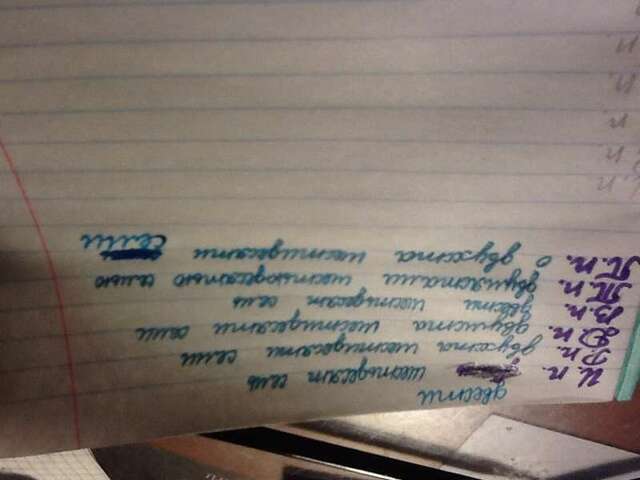 двести
И. п. шестьдесят семь
Р. п. двухста шестидесяти семи
Д. п. двумста шестидесяти семи
В. п. двести шестьдесят семь
Т. п. двумястами шестьюдесятью семью
П. п. о двухста шестидесяти
семи
п.
п.
п.
п.
п.